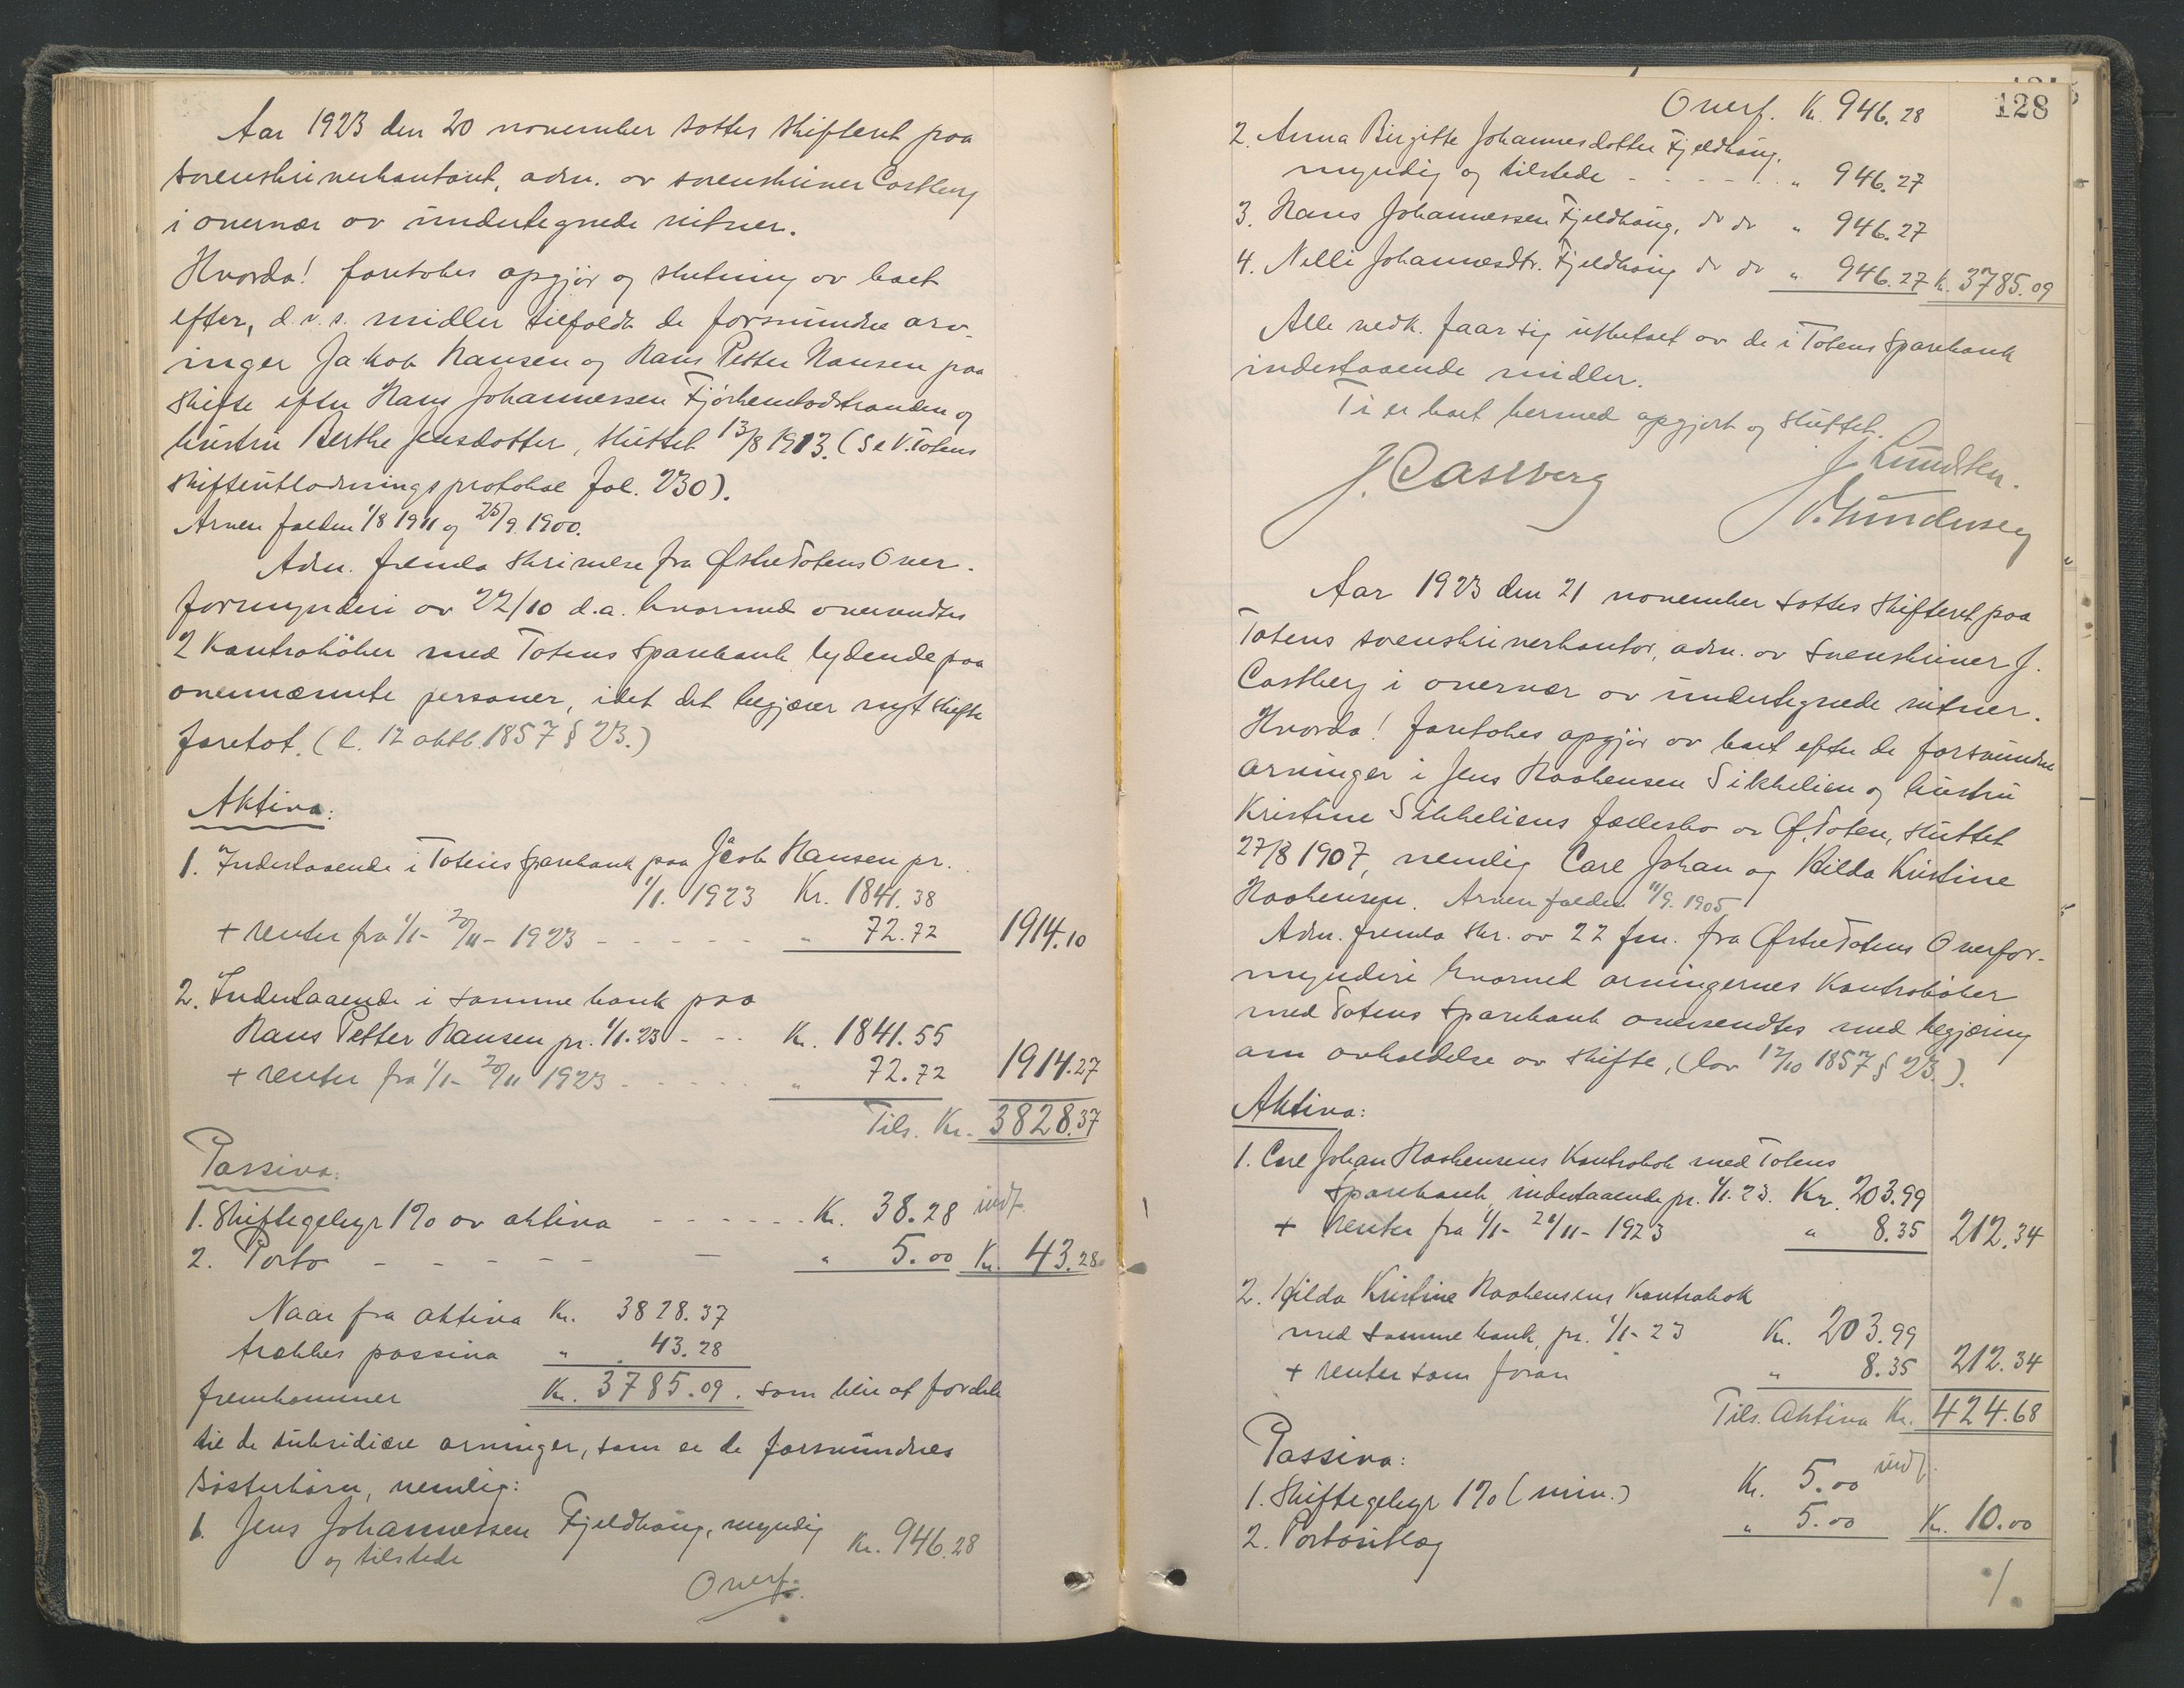 Aar 1923 den 20 november sattes skifteret paa
sorenskriverkontoret, adm. av sorenskriver Castberg
i overvær av undertegnede vitner.
Hvorda! foretokes opgjør og slutning av boet
efter, d.v.s. midler tilfaldt de forsvundne arv-
inger Jakob Hansen og Hans Petter Hansen paa
skifte efter Hans Johannessen
hustru Berthe Jensdatter, sluttet 13/8 1913. (Se V. Totens
skifteutlodningsprotokol fol. 230).
Arven falden 1/8 1911 og 25/9 1900.
Adm. fremla skrivelse fra Østre Totens Over-
formynderi av 22/10 d.a. hvormed oversendtes
2 Kontrabøker med Totens Sparebank lydende paa
ovennævnte personer, idet det begjærer nyt skifte
foretat. (L. 12 oktb. 1857 § 23.)
Aktiva:
1. Indestaaende i Totens Sparebank paa Jacob Hansen pr.
1/1. 1923 Kr. 1841.38
+ renter fra 1/1 - 20/11 - 1923 - - - - - " 72.72 1914.10
2. Indestaaende i samme bank paa
Hans Petter Hansen pr. 1/1. 23 - - - Kr. 1841.55
+ renter fra 1/1 - 20/11 1923 - - - - - " 72.72 1914.27
Tils. Kr. 3828.37
Passiva:
1. Skiftegebyr 1% av aktiva - - - - - - Kr. 38.28 indf.
2. Porto - - - - - - " 5.00 Kr. 43.28
Naar fra aktiva Kr. 3828.37
trækkes passiva " 43.28
fremkommer Kr. 3785.09. som blir at fordele
til de subsidiære arvinger, som er de forsvundnes
søsterbørn, nemlig:
1. Jens Johannessen Fjeldhaug, myndig
og tilstede Kr. 946.28
Overf.
128
Overf. Kr. 946.28
2. Anna Birgitte Johannesdatter Fjeldhaug,
myndig og tilstede - - - - - - " 946.27
3. Hans Johannessen Fjeldhaug, do do " 946.27
4. Nelli Johannesdtr. Fjeldhaug do do " 946.27 Kr. 3785.09
Alle vedk. faar sig utbetalt av de i Totens Sparebank
indestaaende midler.
Ti er boet hermed opgjort og sluttet.
J. Castberg
Aar 1923 den 21 november sattes skifteret paa
Totens sorenskriverkontor, adm. av sorenskriver J.
Castberg i overvær av undertegnede vitner.
Hvorda! foretokes opgjør av boet efter de forsvundne
arvinger i Jens Haakensen Sikkelien og hustru
Kristine Sikkeliens fællesbo av Ø. Toten, sluttet
27/8 1907, nemlig Carl Johan og Hilda Kristine
Haakensen. Arven falden 11/9. 1905
Adm. fremla skr. av 22 f.m. fra Østre Totens Overfor-
mynderi hvormed arvingernes Kontrabøker
med Totens Sparebank oversendtes med begjæring
om avholdelse av skifte, (lov 12/10 1857 § 23.).
Aktiva:
1. Carl Johan Haakensens Kontrabok med Totens
Sparebank, indestaaende pr. 1/1. 23. Kr. 203.99
+ renter fra 1/1 - 20/11 - 1923 " 8.35 212.34
2. Hilda Kristine Haakensens Kontrabok
med samme bank, pr. 1/1 - 23 Kr. 203.99
+ renter som foran " 8.35 212.34
Tils. Aktiva Kr. 424.68
Passiva:
1. Skiftegebyr 1% (min.) Kr. 5.00 indf.
2. Portoutlæg " 5.00 Kr. 10.00
./.